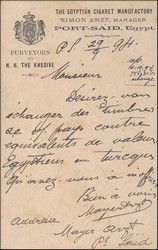 THE EGYPTIAN CIGARET MANUFACTORY
SIMON ARZT, MANAGER
PORT-SAID, Egypt.
PURVEYORS
TO
H. H. THE KHEDIVE
P.S. 29/9 94.
Monsieur
Désirez vous
échanger des timbres
de pays contre
équivalents de valeur
Egyptiens ou turcques
qu'avez vous à m'offrir
Bien à vous
Mayer Arzt
Address
Mayer Arzt
Pt Said